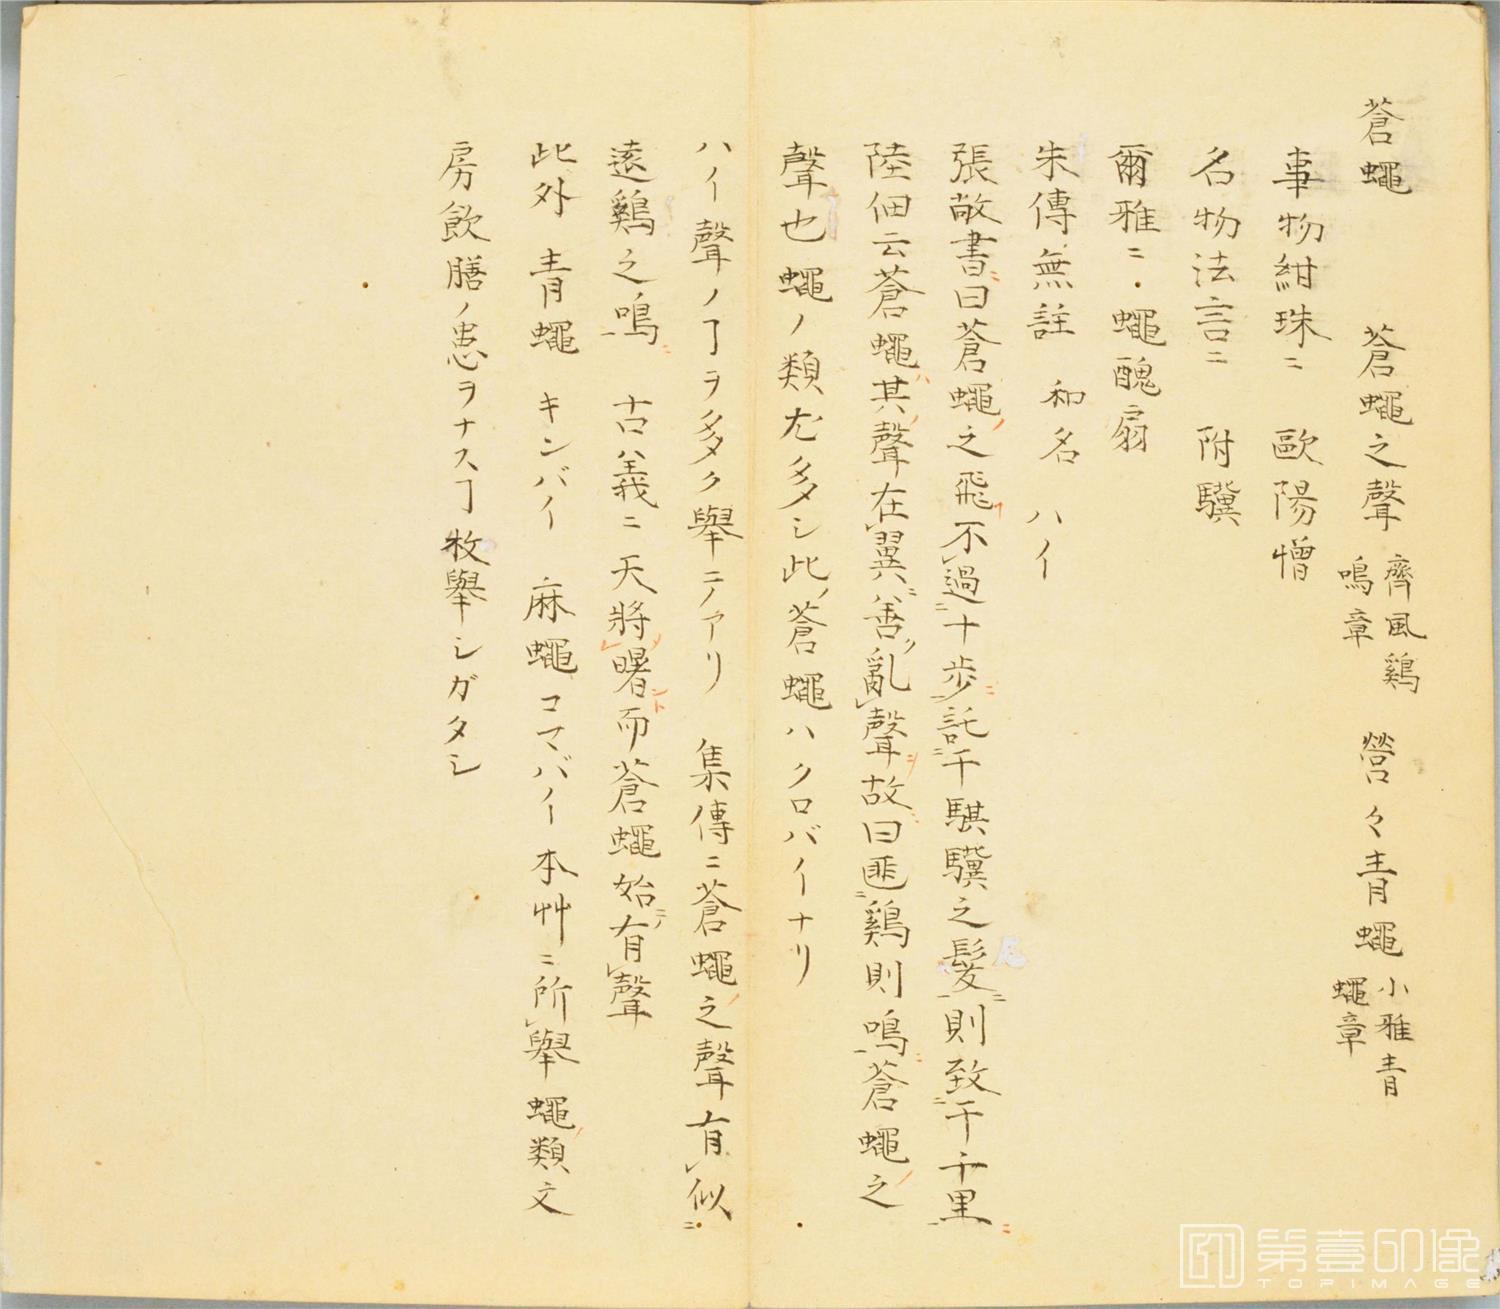 蒼蠅　蒼蠅之聲 齊風鷄鳴章　營々青蠅 小雅青蠅章
事物紺珠ニ　歐陽憎
名物法言ニ　附驥
爾雅ニ・蠅醜扇
朱傳無註　和名　ハイ
張敞書ニ曰蒼蠅ノ之飛フ不過十歩ニ託ニ千騏驥之髮ニ則致ニ千千里ニ
陸佃云蒼蠅ハ其ノ聲在翼ニ善ク亂聲ヲ故曰匪ニ鷄則鳴ニ蒼蠅ノ之
聲也蠅ノ類尤多シ此ノ蒼蠅ハクロバイナリ
ハイ聲ノヿヲ多ク舉ニノアリ　集傳ニ蒼蠅ノ之聲有似ニ
遠鷄之鳴ニ　古義ニ天將ニ曙ント而蒼蠅始ニノ有聲
此外　青蠅　キンバイ　麻蠅コマバイ本艸ニ所舉蠅ノ類文
房飲膳ノ患ヲナスヿ枚舉シガタシ
尾
第壹印像
TOPIMAGE